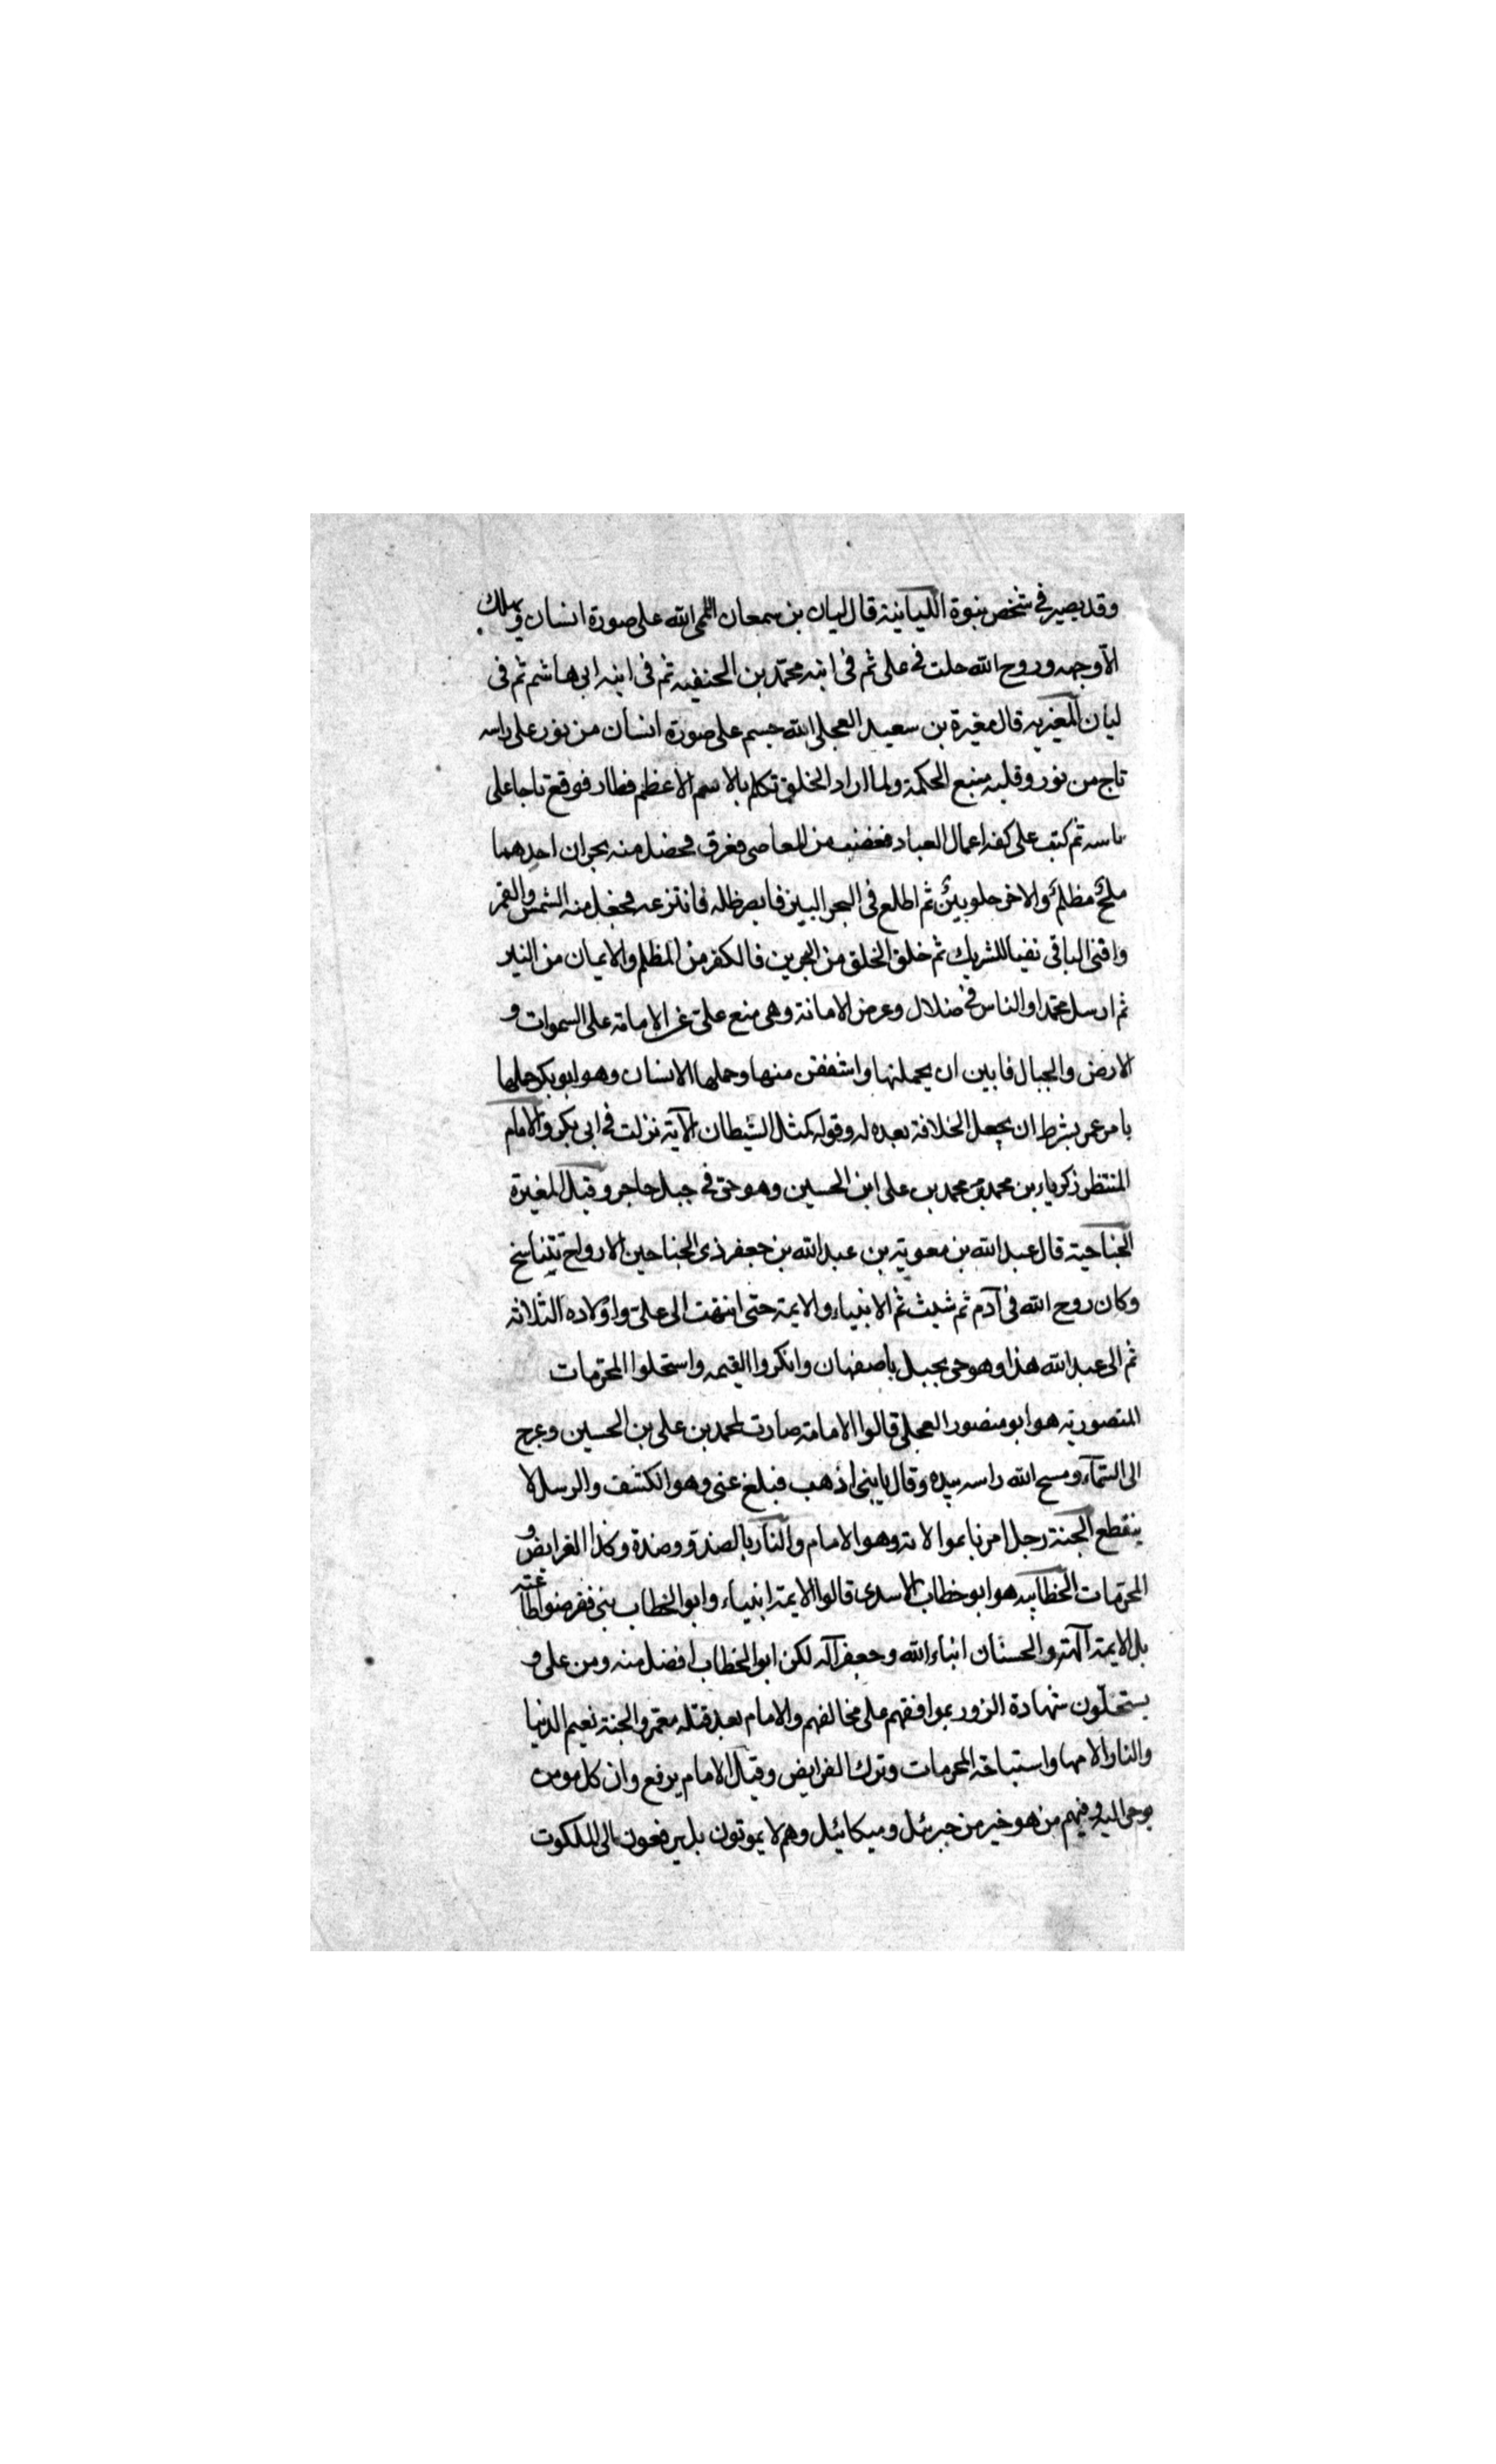 وقد يصير في شخص نبوة اللبيانية قال لبيان بن سمعان اللمى الله على صورة انسان ويهلك
الا وجهه وروح الله حلت في على ثم في ابنه محمد بن الحنفيه ثم في ابنه ابى هاشم ثم في
لبان المغيريه قال مغيرة بن سعيد العجلى الله جسم على صورة انسان من نور على راسه
تاج من نور وقلبه منبع الحكمة ولما اراد الخلق تكلم بالاسم الاعظم فطار فوقع تاجا على
راسه ثم كتب على كفه اعمال العباد فغضب من المعاصى فعرق فحصل منه بحران احدهما
ملح مظلم والاخر حلو بين ثم اطلع في البحر البين فابصر ظله فانتزعه فجعل منه الشمس والقمر
وافنى الباقى نفيا للشريك ثم خلق الخلق من البحرين فالكفر من المظلم والايمان من النير
ثم ارسل محمدا والناس في ضلال وعرض الامانة وهى منع على عن الامامة على السموات و
الارض والجبال فابين ان يحملنها واشفقن منها وحملها الانسان وهو ابو بكر حملها
بامر عمر بشرط ان يجعل الخلافة بعده له وقوله كمثل الشيطان الآية نزلت في ابى بكر والامام
المنتظر زكرياء بن محمد بن محمد بن على ابن الحسين وهو حى في جبل حاجر وقيل المغيرة
الجناحية قال عبد الله بن معوية بن عبد الله بن جعفر ذى الجناحين الارواح تتناسخ
وكان روح الله في آدم ثم شيث ثم الانبياء والايمة حتى انتهت الى على واولاده الثلاثة
ثم الى عبد الله هذا وهو حى بجبل باصفهان وانكروا القيمه واستحلوا المحرمات
المنصورية هو ابو منصور العجلى قالوا الامامة صارت لمحمد بن على بن الحسين وعرج
الى السمآء ومسح الله راسه بيده وقال يابنى اذهب فبلغ عنى وهو الكسف والرسل لا
ينقطع الجنة رجل امرنا بموالاته وهو الامام والنار بالضد وضده وكذا الفرايض و
المحرمات الخطابيه هو ابو خطاب الاسدى قالوا الايمة انبياء وابو الخطاب نبى ففرضوا طاعته
بل الايمة آلهة والحسنان ابناء الله وجعفر آله لكن ابو الخطاب افضل منه ومن على و
يستحلون شهادة الزور بموافقهم على مخالفهم والامام بعد قتله معمر والجنة نعيم الدنيا
والنار آلامها واستباحة المحرمات وترك الفرايض وقيل الامام يرفع وان كل مومن
يوحى اليه وفيهم من هو خير من جبرئيل وميكائيل وهم لا يموتون بل يرفعون الى الملكوت